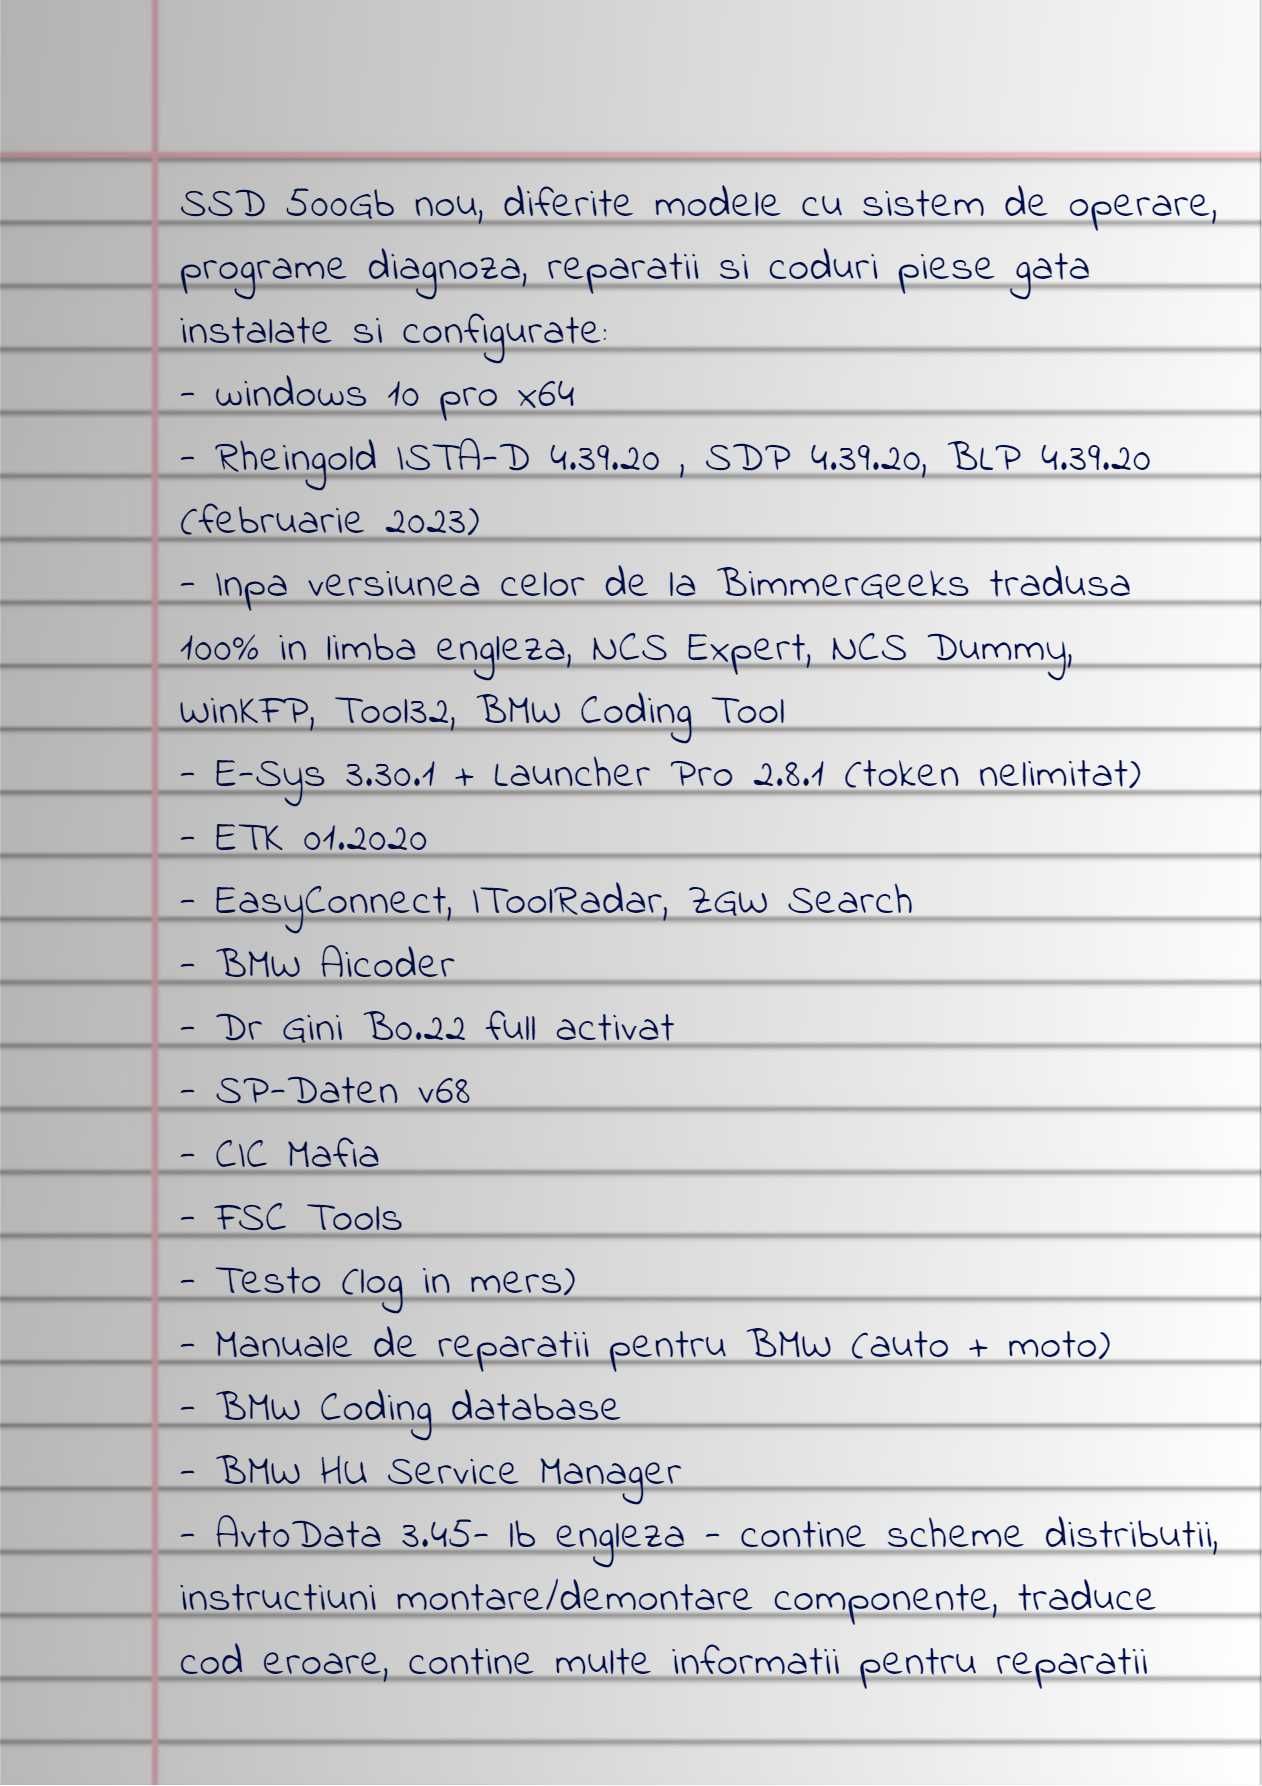 SSD 500Gb nou, diferite modele cu sistem de operare,
programe diagnoza, reparatii si coduri piese gata
instalate si configurate:
- windows 10 pro x64
- Rheingold ISTA-D 4.39.20 , SDP 4.39.20, BLP 4.39.20
(februarie 2023)
- Inpa versiunea celor de la BimmerGeeks tradusa
100% in limba engleza, NCS Expert, NCS Dummy,
WinKFP, Tool32, BMW Coding Tool
- E-Sys 3.30.1 + Launcher Pro 2.8.1 (token nelimitat)
- ETK 01.2020
- EasyConnect, IToolRadar, ZGW Search
- BMW Aicoder
- Dr Gini B0.22 full activat
- SP-Daten v68
- CIC Mafia
- FSC Tools
- Testo (log in mers)
- Manuale de reparatii pentru BMW (auto + moto)
- BMW Coding database
- BMW HU Service Manager
- AvtoData 3.45- lb engleza - contine scheme distributii,
instructiuni montare/demontare componente, traduce
cod eroare, contine multe informatii pentru reparatii